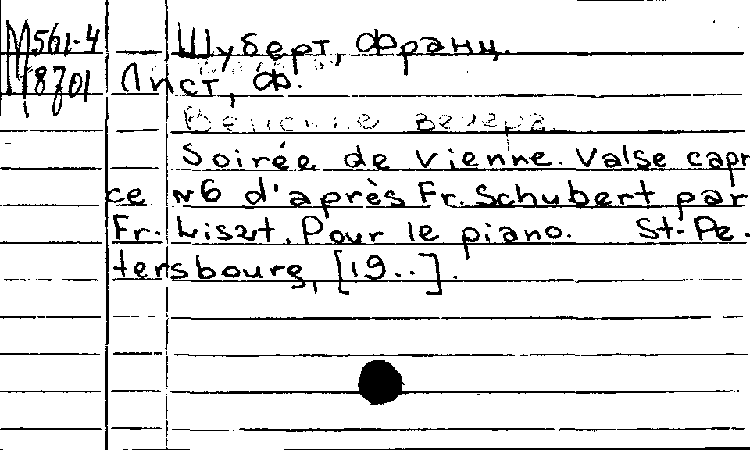 М561-4 Шуберт, Франц.
М8701 Лист, Ф.
Венские вечера
Soirée de Vienne. Valse capri
ce №6 d'après Fr. Schubert par
Fr. Liszt. Pour le piano. St-Pe-
tersbourg, [19..].